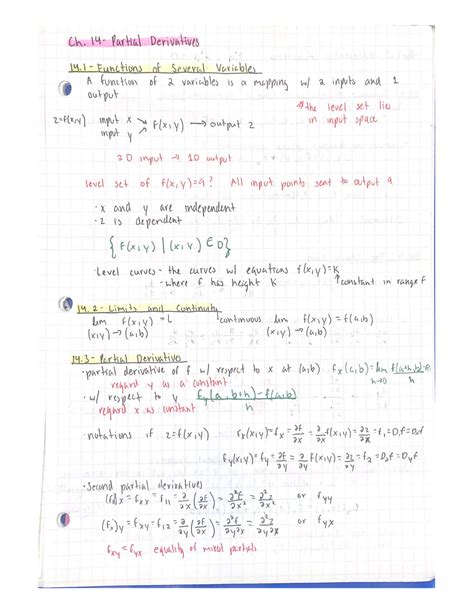 Ch. 14- Partial Derivatives
14.1- Functions of Several Variables
A function of 2 variables is a mapping w/ 2 inputs and 1
output
the level set lies
in input space
z=f(x,y) input x
input y → f(x,y) → output z
2D input → 1D output
level set of f(x,y)=9? All input points sent to output 9
·x and y are independent
·z is dependent
{f(x,y) | (x,y) ∈ D}
·Level curves- the curves w/ equations f(x,y)=K
-where f has height K ↑constant in range f
14.2- Limits and Continuity
lim f(x,y) = L continuous lim f(x,y) = f(a,b)
(x,y)→(a,b) (x,y)→(a,b)
14.3- Partial Derivatives
·partial derivative of f w/ respect to x at (a,b) fx(a,b)=lim
h→0
regard y as a constant
·w/ respect to y fy(a,b+h)-f(a,b)
h
regard x as constant
·notations if z=f(x,y) fx(x,y)=fx=∂f/∂x=∂/∂x f(x,y)=∂z/∂x=f1=D1f=Dxf
fy(x,y)=fy=∂f/∂y=∂/∂y f(x,y)=∂z/∂y=f2=D2f=Dyf
·Second partial derivatives
(fx)x=fxx=f11=∂/∂x(∂f/∂x)=∂²f/∂x²=∂²z/∂x² or fyy
(fx)y=fxy=f12=∂/∂y(∂f/∂x)=∂²f/∂y∂x=∂²z/∂y∂x or fyx
fxy=fyx equality of mixed partials